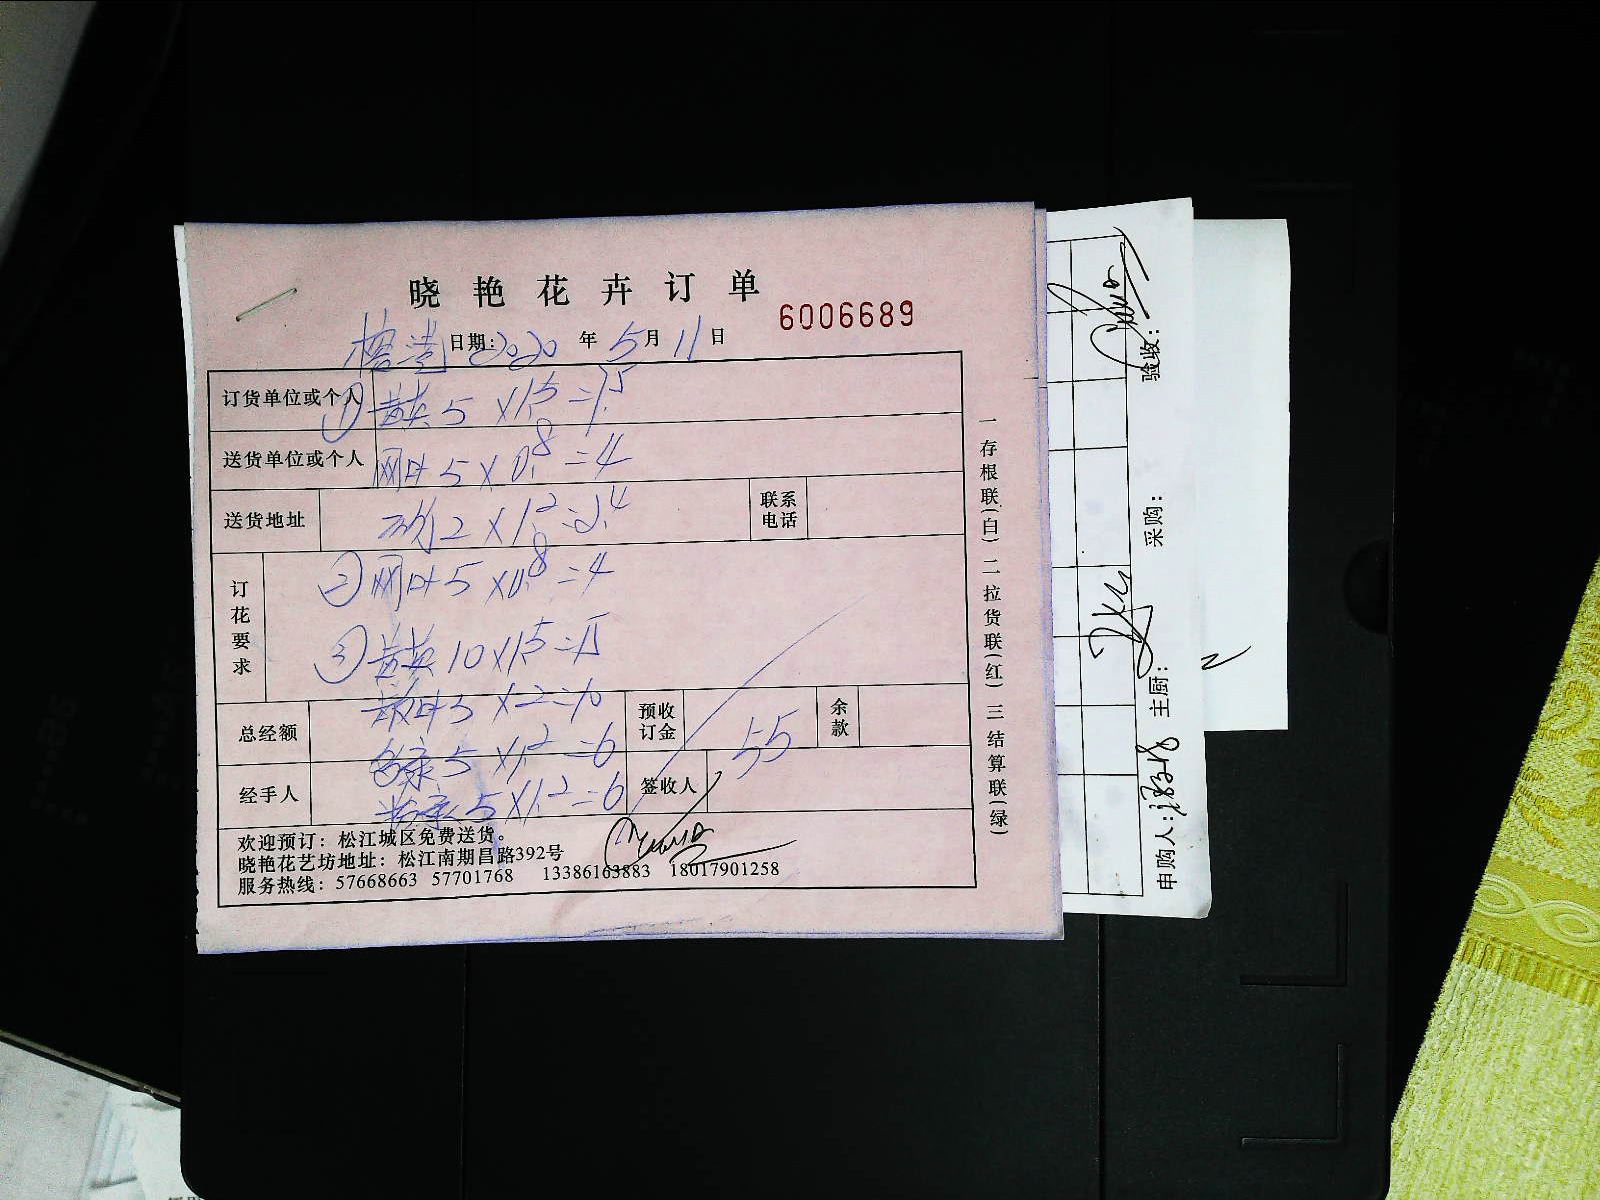 晓艳花卉订单
6006689
日期: 2020 年 5 月 11 日
订货单位或个人 ① 黄英 5 × 1.5 = 7.5
送货单位或个人 网叶 5 × 0.8 = 4
送货地址 2 × 1.2 = 2.4 联系电话
订花要求 ② 网叶 5 × 0.8 = 4
③ 黄英 10 × 1.5 = 15
总经额 5 × 2 = 10 预收订金 余款
5 × 1.2 = 6 55
经手人 5 × 1.2 = 6 签收人
欢迎预订：松江城区免费送货。
晓艳花艺坊地址：松江南期昌路392号
服务热线：57668663 57701768 13386163883 18017901258
一存根联(白) 二拉货联(红) 三结算联(绿)
申购人: 主厨: 采购: 验收: